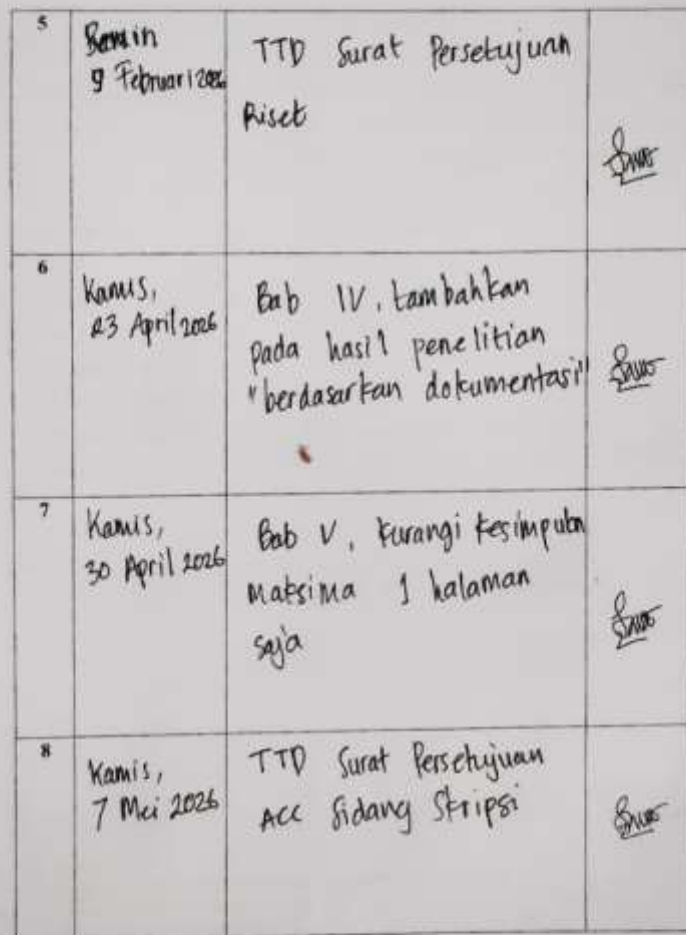 5
Senin
9 Februari 2026
TTD Surat Persetujuan
Riset
6
Kamis,
23 April 2026
Bab IV, tambahkan
pada hasil penelitian
"berdasarkan dokumentasi"
7
Kamis,
30 April 2026
Bab V, kurangi kesimpuln
maksima 1 halaman
saja
8
Kamis,
7 Mei 2026
TTD Surat Persetujuan
ACC Sidang Skripsi